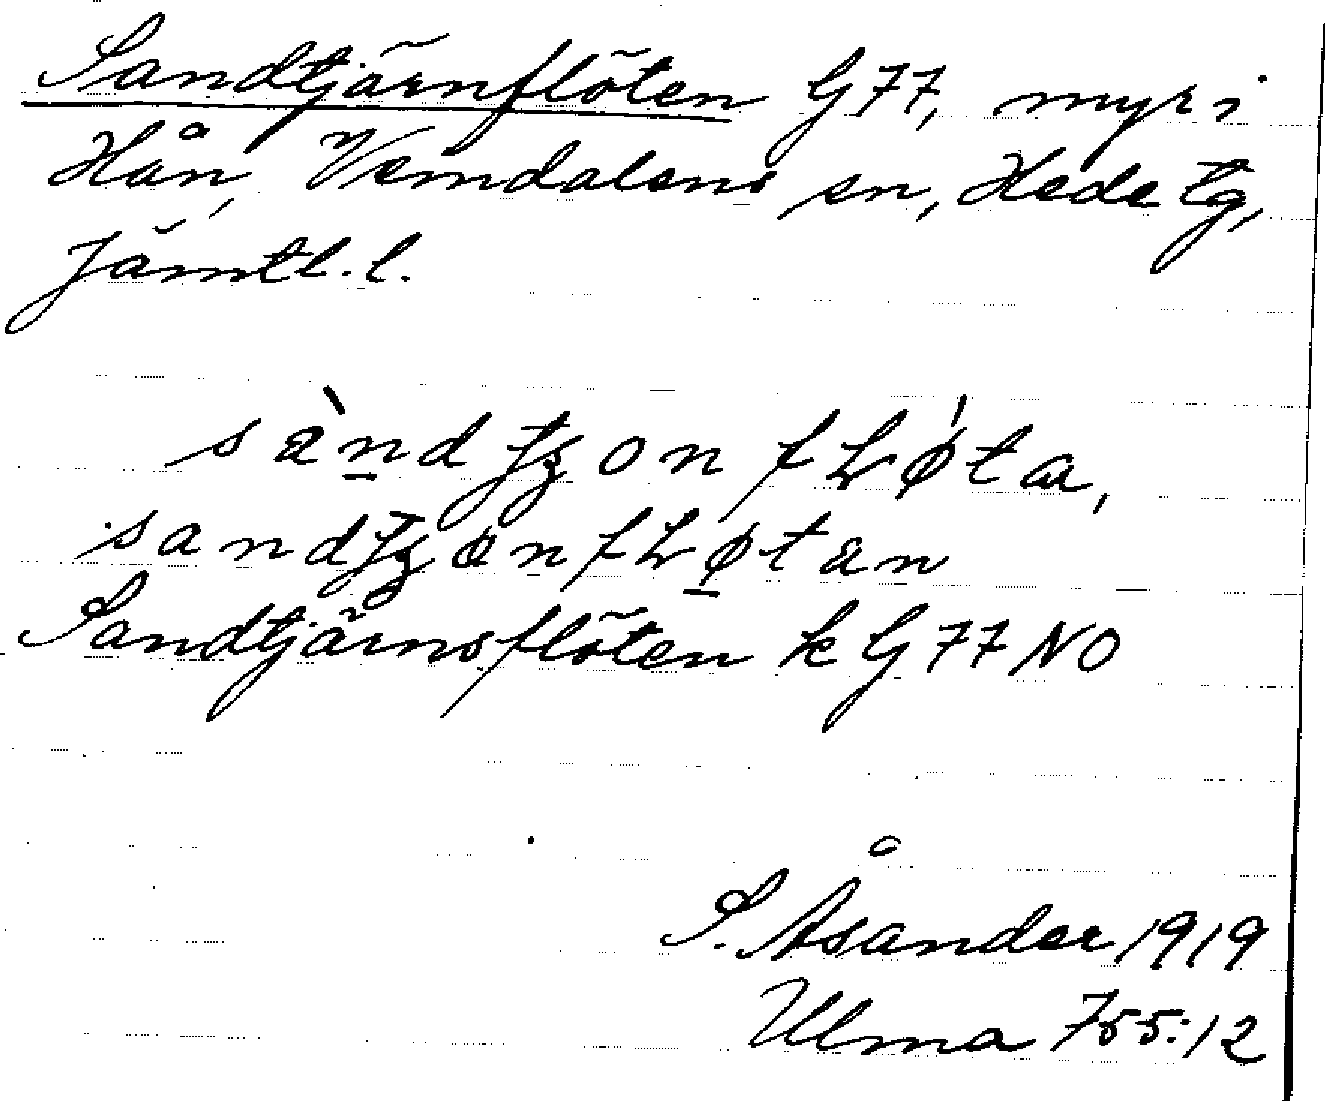 Sandtjärnflöten G77, myr i
Hån, Vemdalens sn, Hede tg,
Jämtl. l.
Sandtjärnsflöten k G77 NO
S. Åsander 1919
Ulma 755:12